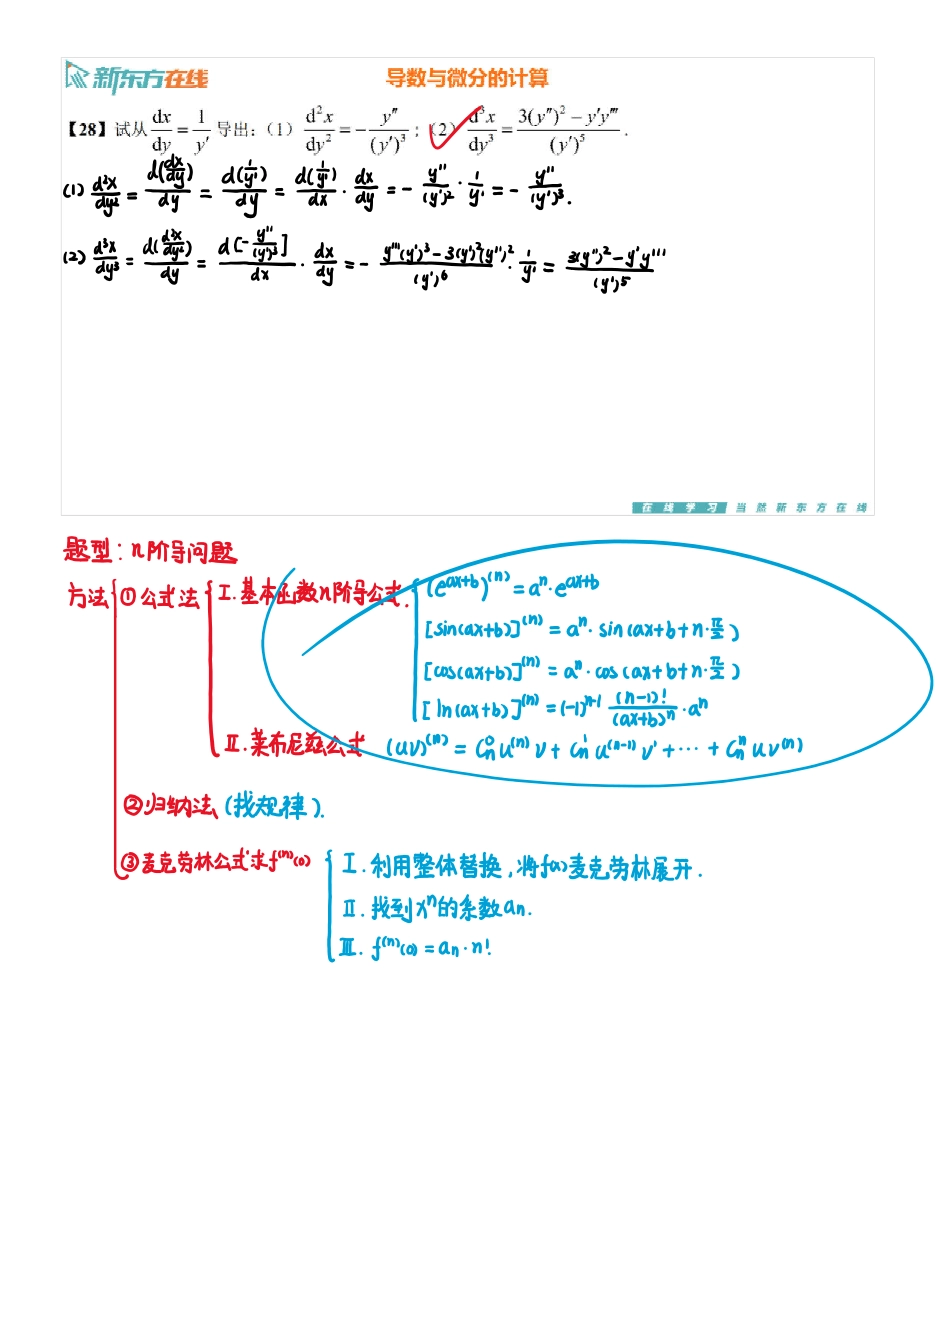 新东方在线
导数与微分的计算
【28】试从 dx/dy = 1/y′ 导出:(1) d²x/dy² = − y″/(y′)³ ;(2) d³x/dy³ = (3(y″)² − y′y‴)/(y′)⁵ .
(1) d²x/dy² = d(dx/dy)/dy = d(1/y′)/dy = d(1/y′)/dx · dx/dy = − y″/(y′)² · 1/y′ = − y″/(y′)³.
(2) d³x/dy³ = d(d²x/dy²)/dy = d[−y″/(y′)³]/dx · dx/dy = − (y‴(y′)³ − 3(y′)²(y″)²)/(y′)⁶ · 1/y′ = (3(y″)² − y′y‴)/(y′)⁵
在线学习 当然新东方在线
题型: n阶导问题
方法 ①公式法 Ⅰ. 基本函数n阶导公式. (e^(ax+b))^(n) = aⁿ · e^(ax+b)
[sin(ax+b)]^(n) = aⁿ · sin(ax+b+n·π/2)
[cos(ax+b)]^(n) = aⁿ · cos(ax+b+n·π/2)
[ln(ax+b)]^(n) = (−1)^(n−1) (n−1)!/(ax+b)ⁿ · aⁿ
Ⅱ. 莱布尼兹公式 (uv)^(n) = Cn⁰ u^(n) v + Cn¹ u^(n−1) v′ + ⋯ + Cnⁿ u v^(n)
②归纳法 (找规律).
③麦克劳林公式求f^(n)(0) Ⅰ. 利用整体替换,将f(x)麦克劳林展开.
Ⅱ. 找到xⁿ的系数an.
Ⅲ. f^(n)(0) = an · n!